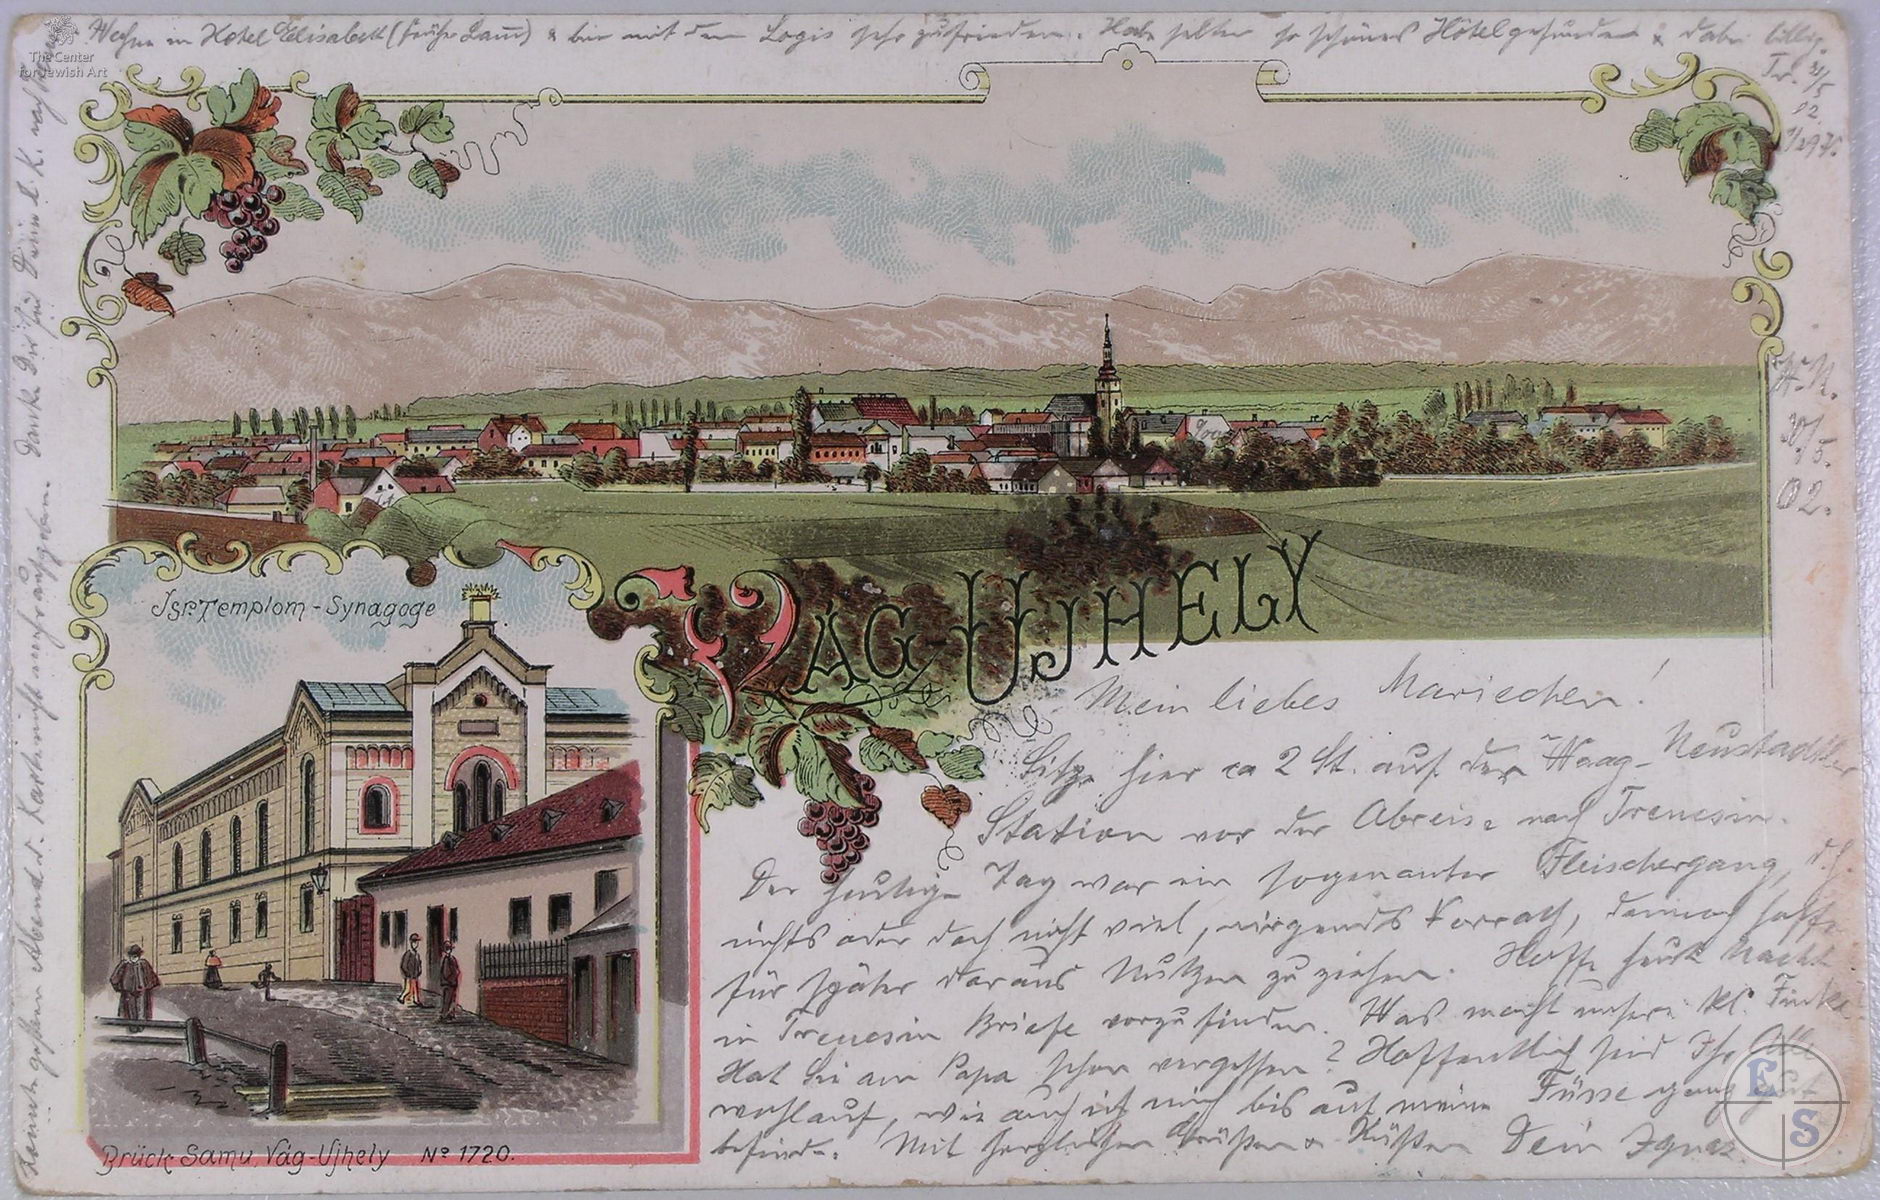 Wohne in Hotel Elisabeth (früher Lamm) & bin mit dem Logis sehr zufrieden. Habe selten so schönes Hôtel gefunden & dabei billig.
The Center
for Jewish Art
Tr. 31/5
02.
H.N.
30/5.
02.
Isr. Templom - Synagoge
VÁG-UJHELY
Mein liebes Mariechen!
Sitze hier ca 2 St. auf der Waag-Neustadtler
Station vor der Abreise nach Trencsin.
Der heutige Tag war ein sogenannter Fleischergang, d.h.
nichts oder doch nicht viel, nirgends Vorrath, dennoch hoffe
für später daraus Nutzen zu ziehen. Hoffe heute Nacht
in Trencsin Briefe vorzufinden. Was macht unsere kl.
Hat sie am Papa schon vergessen? Hoffentlich seid Ihr Alle
wohlauf, wie auch ich mich bis auf meine Füsse ganz gut
befinde. Mit herzlichen Grüßen & Küßen Dein Ignaz
Konnte gestern Abend d. Karte nicht mehr aufgeben. Danke Dir für Deine d. K. nach
Brück Samu, Vág-Ujhely No 1720.
E
S